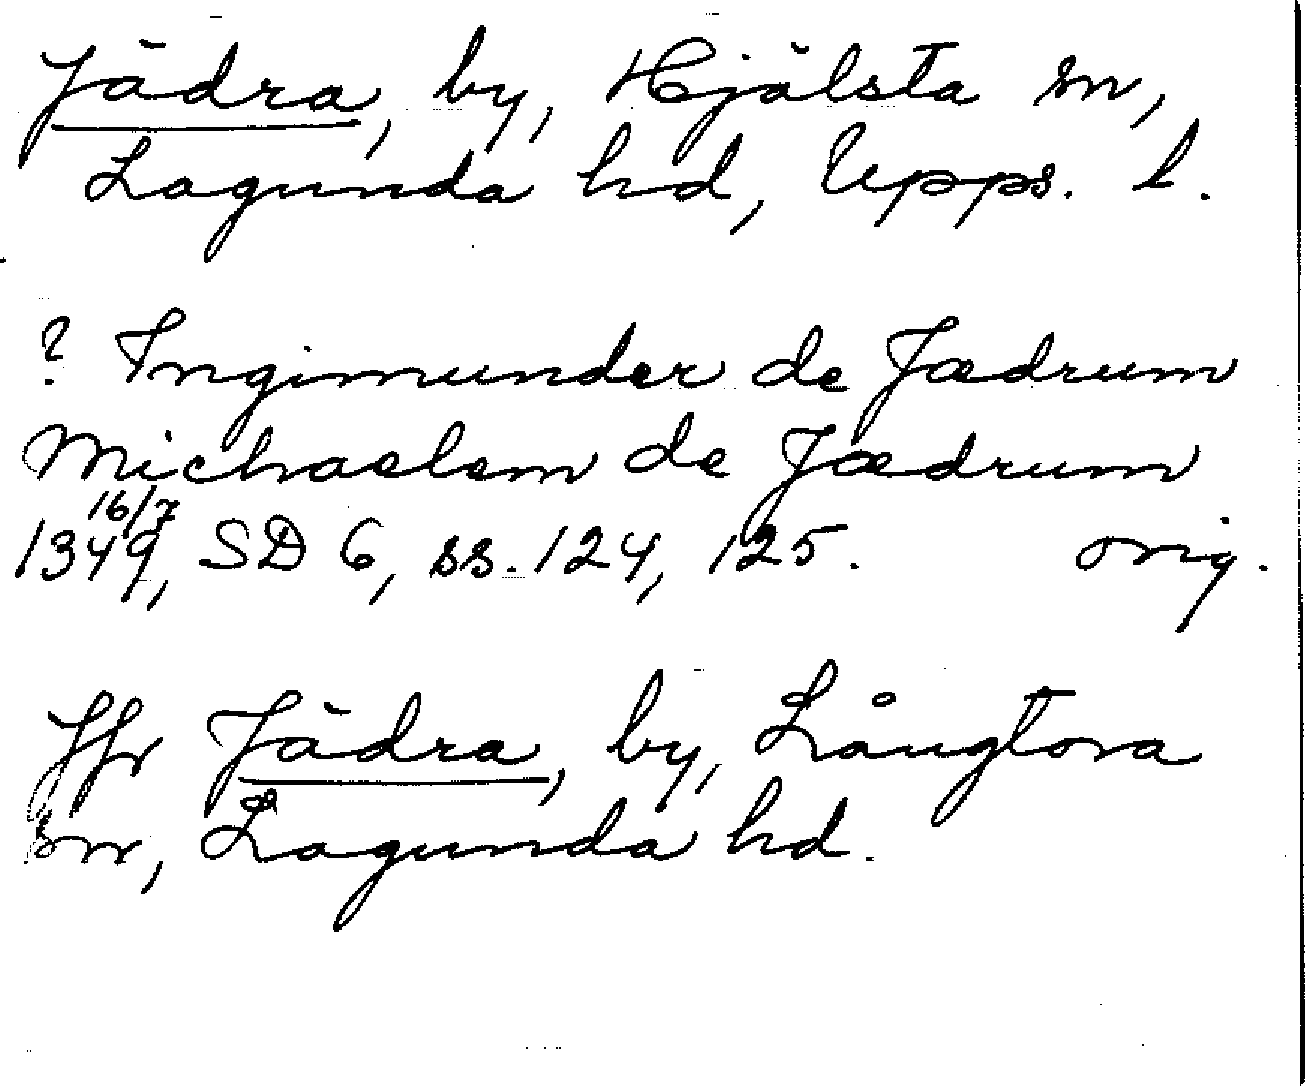 Jädra, by, Hjälsta sn,
Lagunda hd, Upps. l.
? Ingimunder de Jædrum
Michaelem de Jædrum
1349 16/7, SD 6, ss. 124, 125. orig.
Jfr Jädra, by, Långtora
sn, Lagunda hd.